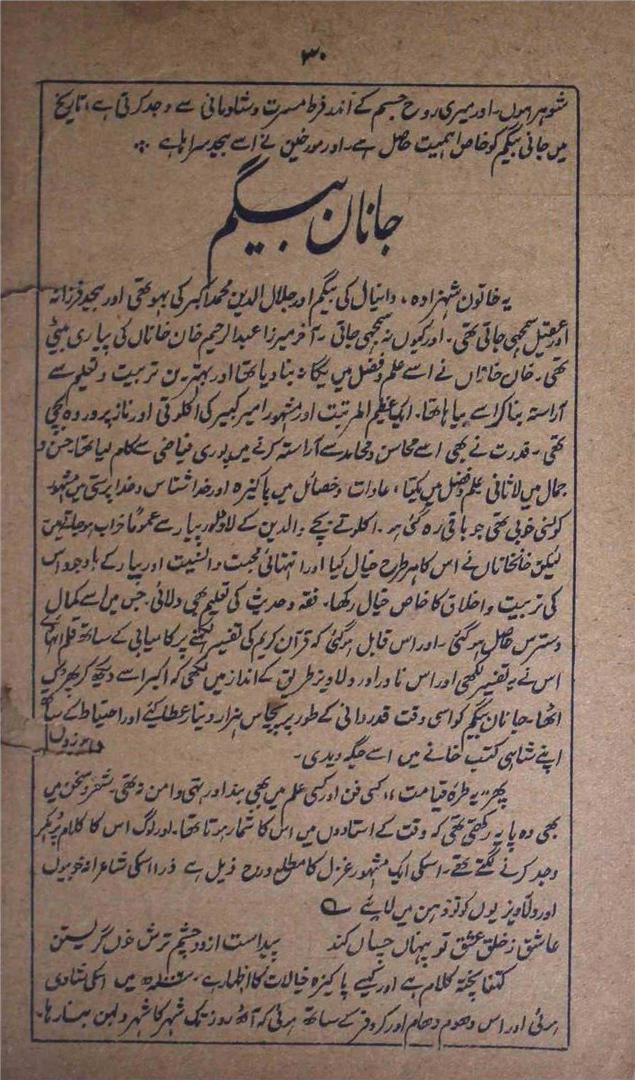 ۳۰
شوہر ہوں۔ اور میری روح جسم کے اندر فرط مسرت و شادمانی سے وجد کرتی ہے، تاریخ
میں جانی بیگم کو خاص اہمیت حاصل ہے۔ اور مورخین نے اسے بیحد سراہا ہے
جانان بیگم
یہ خاتون شہزادہ، دانیال کی بیگم اور جلال الدین محمد اکبر کی بہو تھی اور بیحد فرزانہ
اور عقیل سمجھی جاتی تھی۔ اور کیوں نہ سمجھی جاتی۔ آخر میرزا عبدالرحیم خان خاناں کی پیاری بیٹی
تھی۔ خان خاناں نے اسے علم و فضل میں یگانہ بنا دیا تھا اور بہترین تربیت و تعلیم سے
آراستہ بنا کر اسے بیاہا تھا۔ ایک عظیم المرتبت اور مشہور امیر کبیر کی اکلوتی اور ناز پروردہ بچی
تھی۔ قدرت نے بھی اسے محاسن و محامد سے آراستہ کرنے میں پوری فیاضی سے کام لیا تھا حسن و
جمال میں لاثانی علم و فضل میں یکتا، عادات و خصائل میں پاکیزہ اور خدا شناس و خدا پرستی میں مشہور
کونسی خوبی تھی جو باقی رہ گئی ہو۔ اکلوتے بچے والدین کے لاڈ اور پیار سے عموماً خراب ہو جاتے ہیں
لیکن خانخاناں نے اس کا ہر طرح خیال کیا اور انتہائی محبت و انسیت اور پیار کے باوجود اس
کی تربیت و اخلاق کا خاص خیال رکھا۔ فقہ و حدیث کی تعلیم بھی دلائی۔ جس میں اسے کمال
دسترس حاصل ہو گئی۔ اور اس قابل ہو گئی کہ قرآن کریم کی تفسیر لکھنے پر کامیابی کے ساتھ قلم اٹھائے
اس نے یہ تفسیر لکھی اور اس نادر اور دلاویز طریق کے انداز میں لکھی کہ اکبر اسے دیکھ کر پھڑک
اٹھا۔ جانان بیگم کو اسی وقت قدر دانی کے طور پر پچاس ہزار دینار عطا کیئے اور احتیاط کے ساتھ
اپنے شاہی کتب خانے میں اسے جگہ دیدی۔
پھر "یہ طرہ قیامت" کسی فن اور کسی علم میں بھی بند اور تہی دامن نہ تھی۔ شعر و سخن میں
بھی وہ پایہ رکھتی تھی کہ وقت کے استادوں میں اس کا شمار ہوتا تھا۔ اور لوگ اس کا کلام پڑھکر
وجد کرنے لگتے تھے۔ اسکی ایک مشہور غزل کا مطلع درج ذیل ہے ذرا اسکی شاعرانہ خوبیوں
اور دلاویزیوں کو تو ذہن میں لائیے
عاشق ز خلق عشق تو پنہاں چساں کند پیداست از دو چشم ترش خوں گریستن
کتنا پختہ کلام ہے اور کیسے پاکیزہ خیالات کا اظہار ہے۔ میں اسکی شادی
ہوئی اور اس دھوم دھام اور کروفر کے ساتھ ہوئی کہ آٹھ روز تک شہر کا شہر دلہن بنا رہا۔